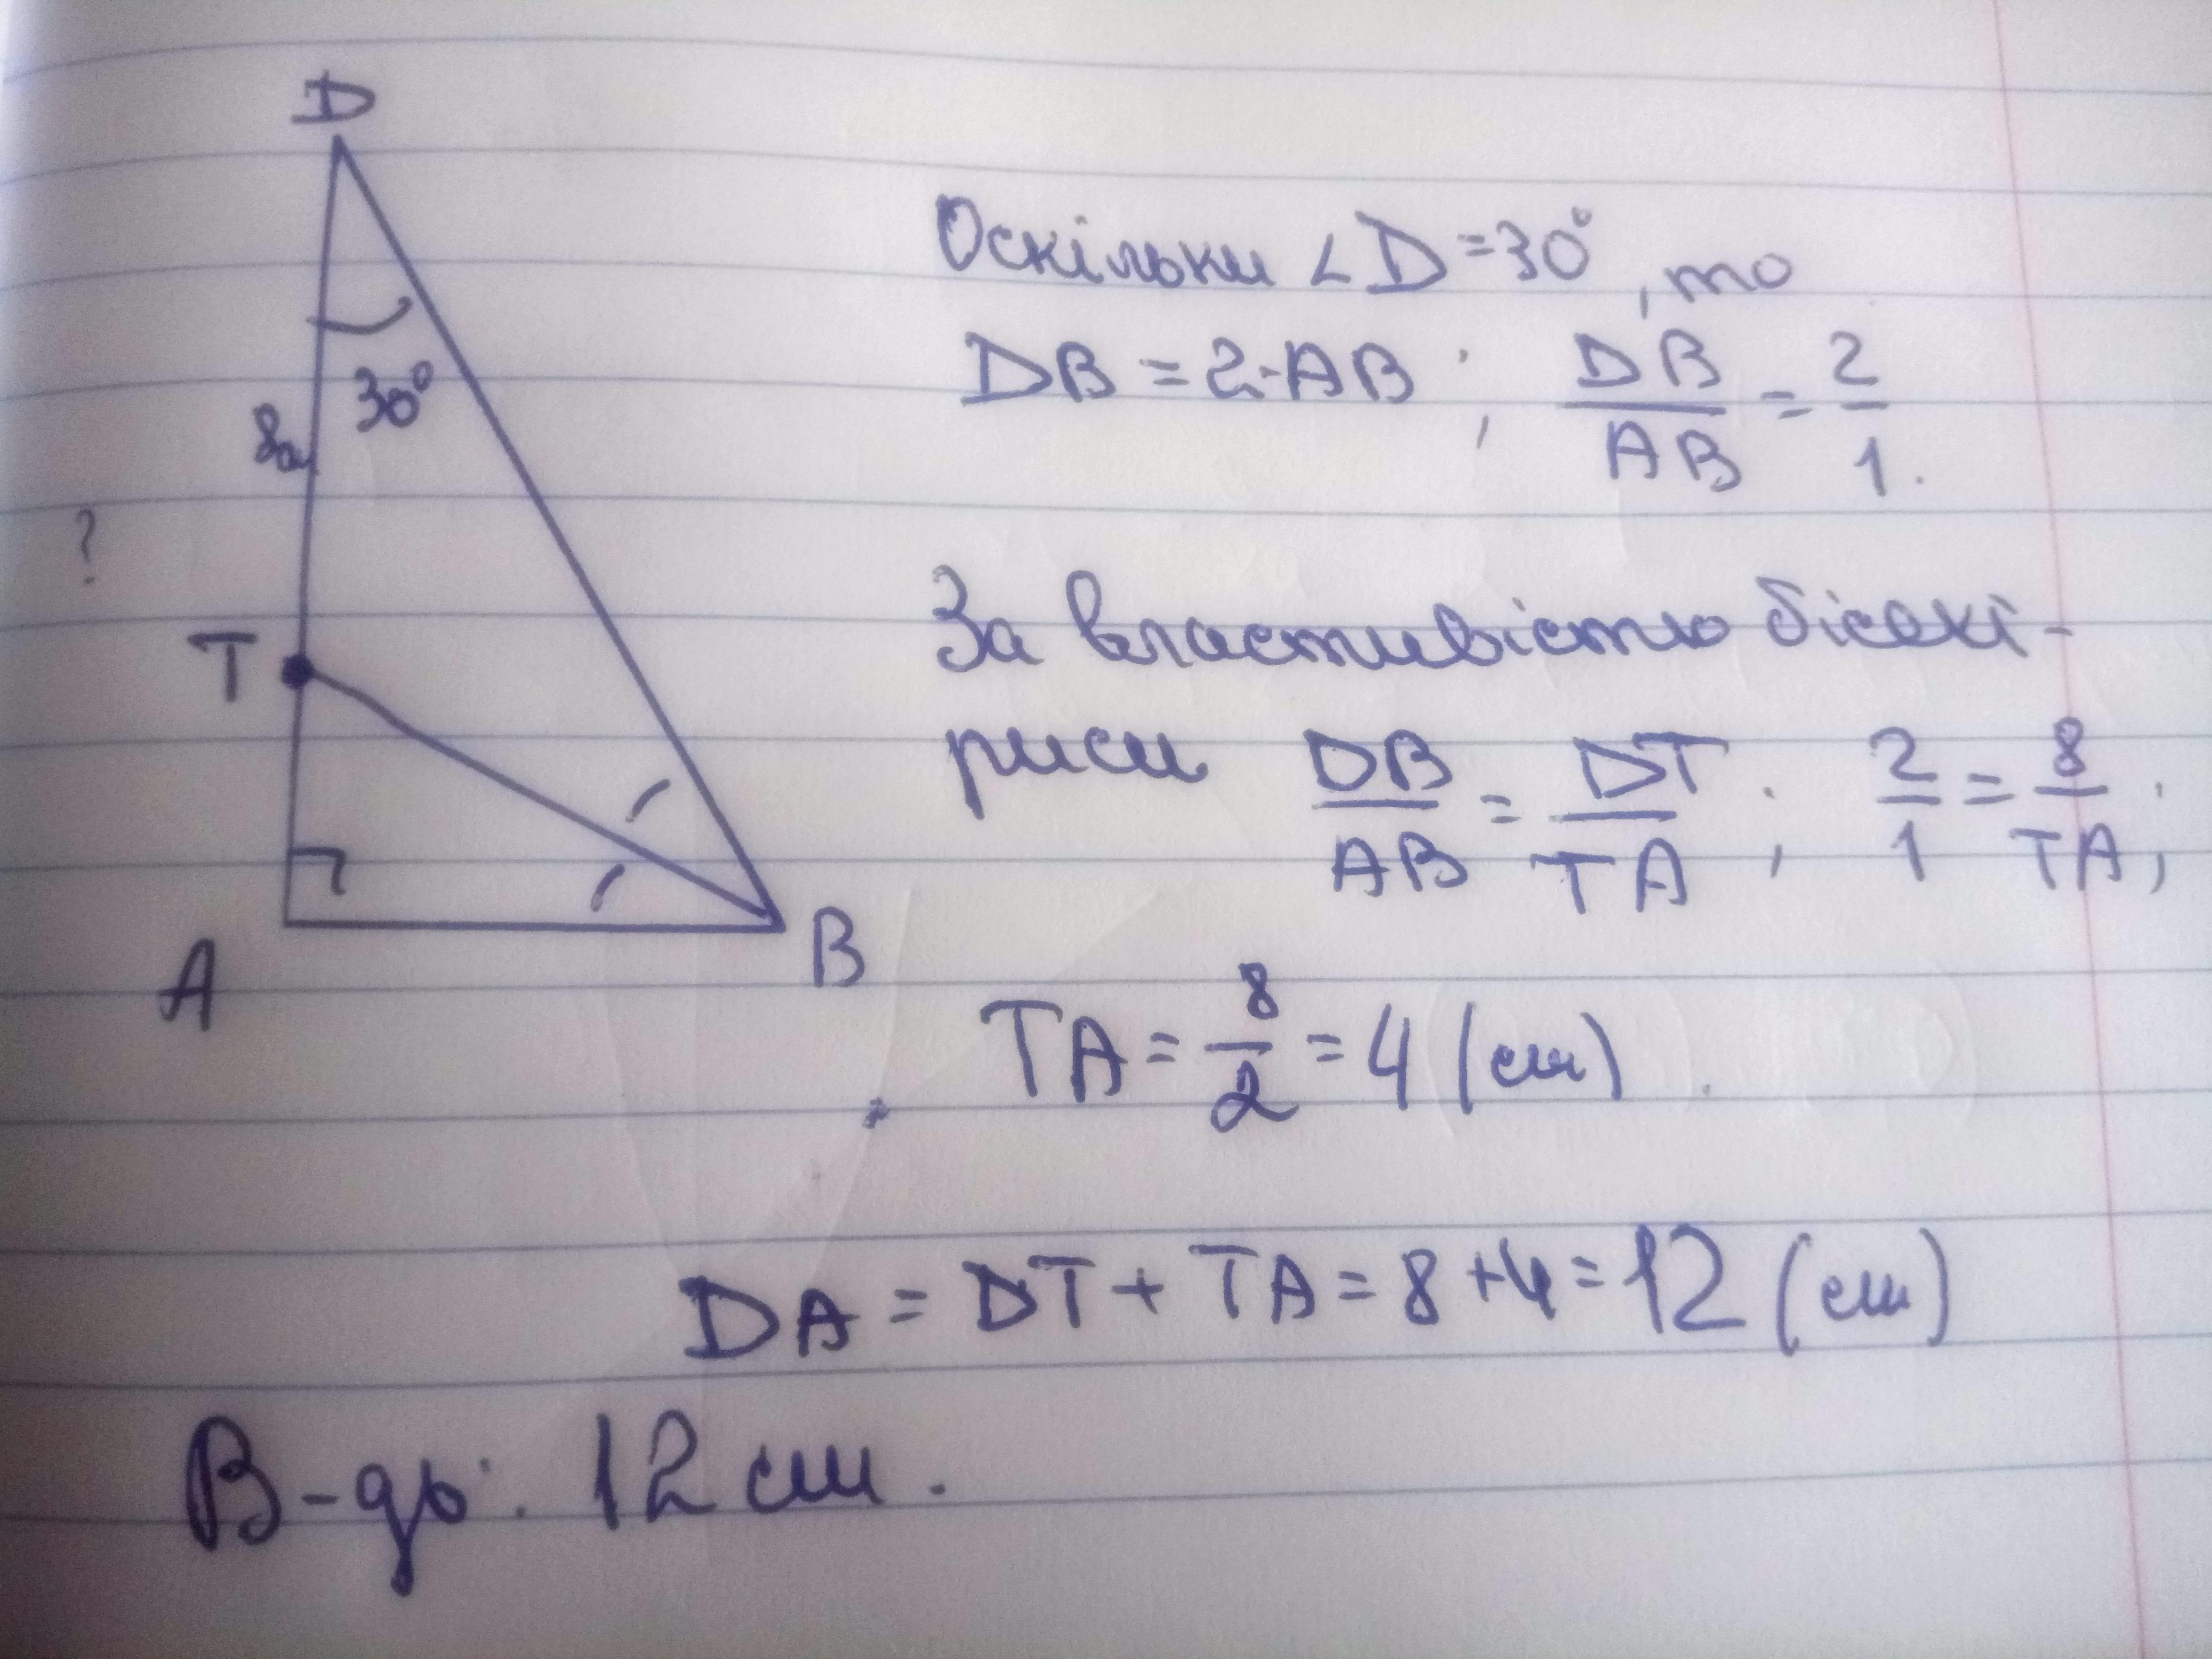 D
30°
8см
?
T
A
B
Оскільки ∠D=30°, то
DB = 2·AB ; DB/AB = 2/1.
За властивістю бісекі-
риси DB/AB = DT/TA ; 2/1 = 8/TA ;
TA = 8/2 = 4 (см)
DA = DT + TA = 8+4 = 12 (см)
В-дь: 12 см.